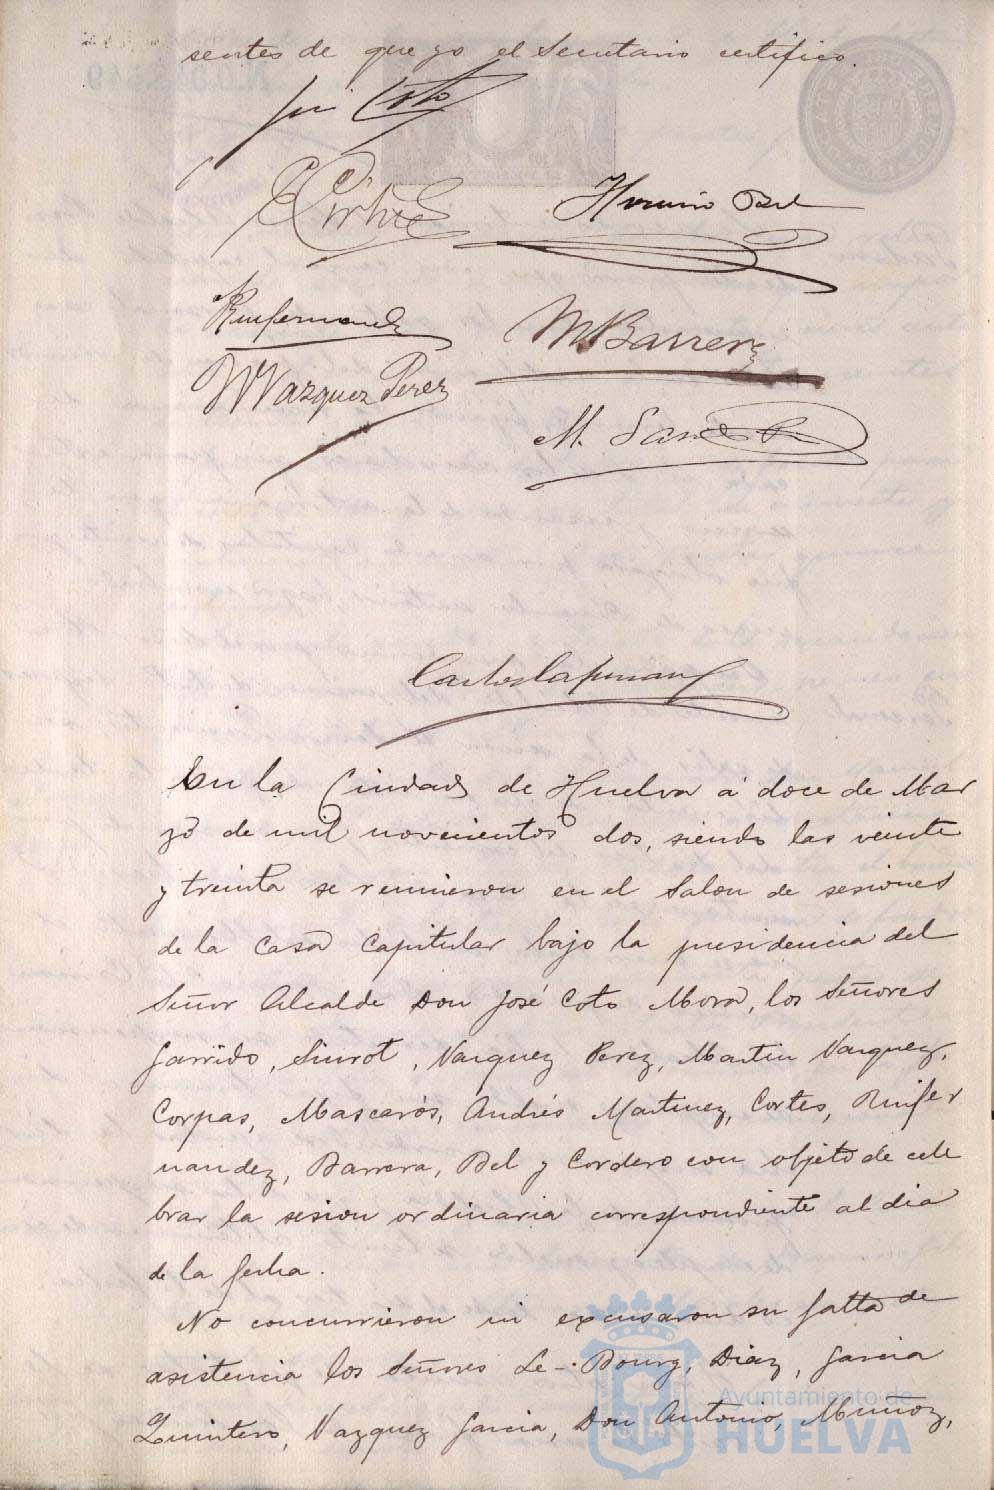 sentes de que yo el Secretario certifico.
José Coto
Horacio Bel
Ruifernandez
M Barrera
W Vazquez Perez
M. 
En la Ciudad de Huelva á doce de Mar
zo de mil novecientos dos, siendo las veinte
y treinta se reunieron en el Salon de sesiones
de la Casa Capitular bajo la presidencia del
Señor Alcalde Don José Coto Mora, los Señores
Garrido, Siurot, Vazquez Perez, Martin Vazquez,
Corpas, Mascarós, Andrés Martinez, Cortes, Ruifer
nandez, Barrera, Bel y Cordero con objeto de cele
brar la sesion ordinaria correspondiente al dia
de la fecha.
No concurrieron ni excusaron su falta de
asistencia los Señores Le-Bourg, Diaz, Garcia
Quintero, Vazquez Garcia, Don Antonio, Muñoz,
Ayuntamiento de
HUELVA